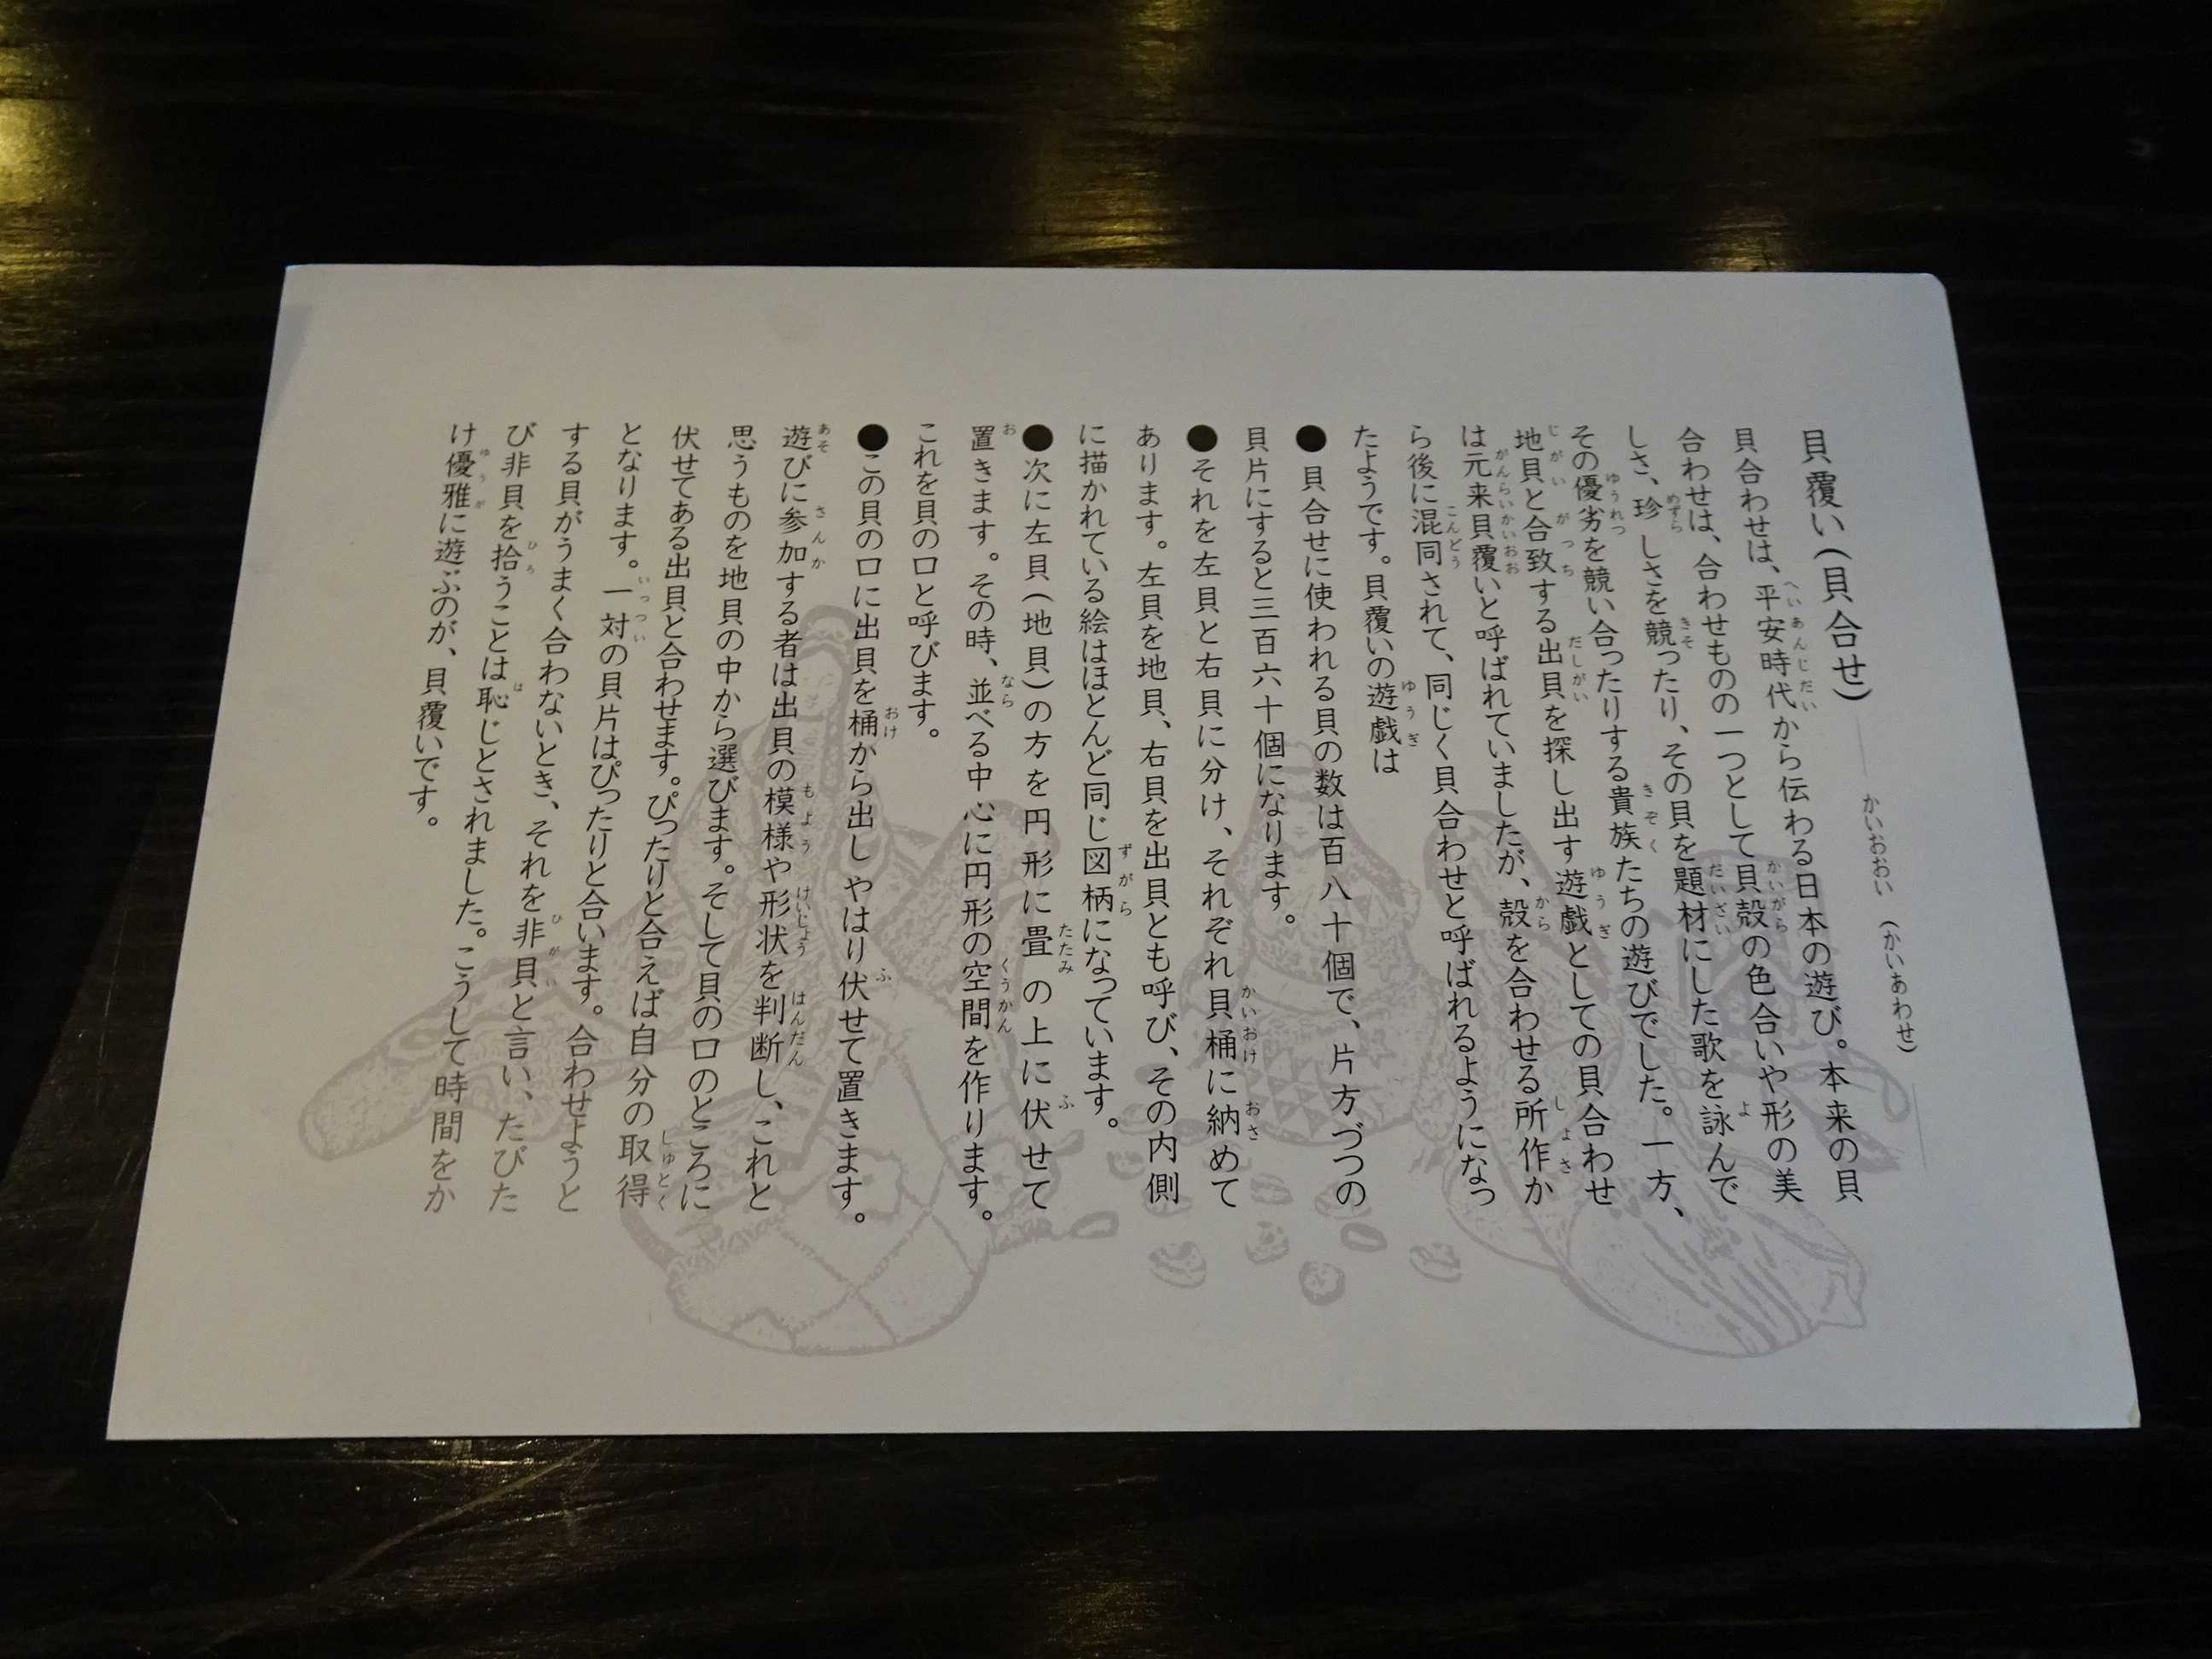 貝覆い(貝合せ) かいおおい (かいあわせ)
貝合わせは、平安時代から伝わる日本の遊び。本来の貝
合わせは、合わせものの一つとして貝殻の色合いや形の美
しさ、珍しさを競ったり、その貝を題材にした歌を詠んで
その優劣を競い合ったりする貴族たちの遊びでした。一方、
地貝と合致する出貝を探し出す遊戯としての貝合わせ
は元来貝覆いと呼ばれていましたが、殻を合わせる所作か
ら後に混同されて、同じく貝合わせと呼ばれるようになっ
たようです。貝覆いの遊戯は
●貝合せに使われる貝の数は百八十個で、片方づつの
貝片にすると三百六十個になります。
●それを左貝と右貝に分け、それぞれ貝桶に納めて
あります。左貝を地貝、右貝を出貝とも呼び、その内側
に描かれている絵はほとんど同じ図柄になっています。
●次に左貝(地貝)の方を円形に畳の上に伏せて
置きます。その時、並べる中心に円形の空間を作ります。
これを貝の口と呼びます。
●この貝の口に出貝を桶から出しやはり伏せて置きます。
遊びに参加する者は出貝の模様や形状を判断し、これと
思うものを地貝の中から選びます。そして貝の口のところに
伏せてある出貝と合わせます。ぴったりと合えば自分の取得
となります。一対の貝片はぴったりと合います。合わせようと
する貝がうまく合わないとき、それを非貝と言い、たびた
び非貝を拾うことは恥じとされました。こうして時間をか
け優雅に遊ぶのが、貝覆いです。